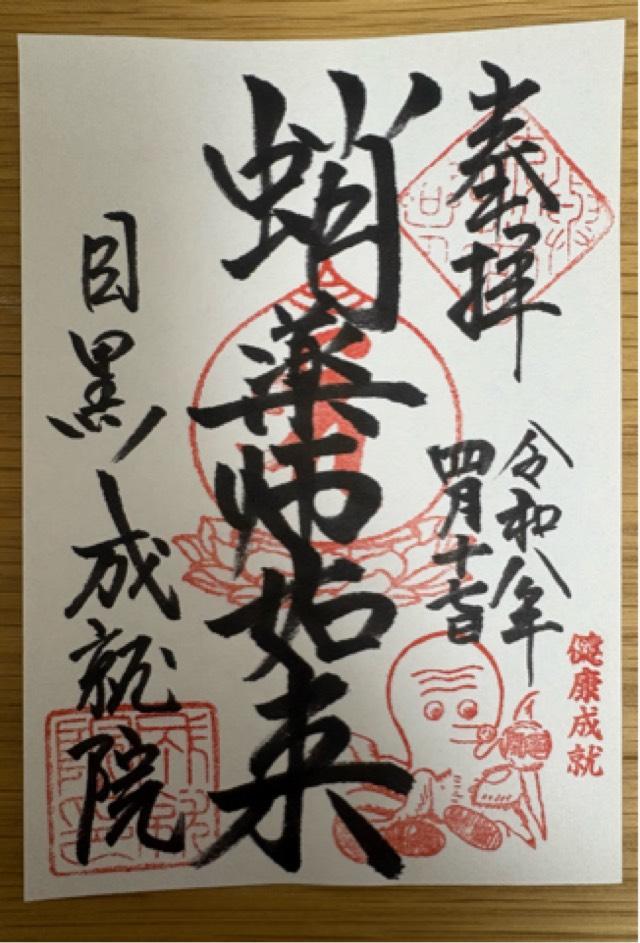 奉拝
令和八年
四月十七日
蛸薬師如来
目黒成就院
健康成就